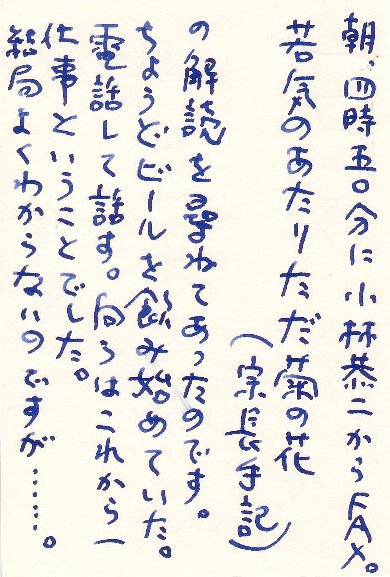 朝、四時五〇分に小林恭二からFAX。
若気のあたりただ菊の花
(宗長手記)
の解読を尋ねてあったのです。
ちょうどビールを飲み始めていた。
電話して話す。向うはこれから一
仕事ということでした。
結局よくわからないのですが……。